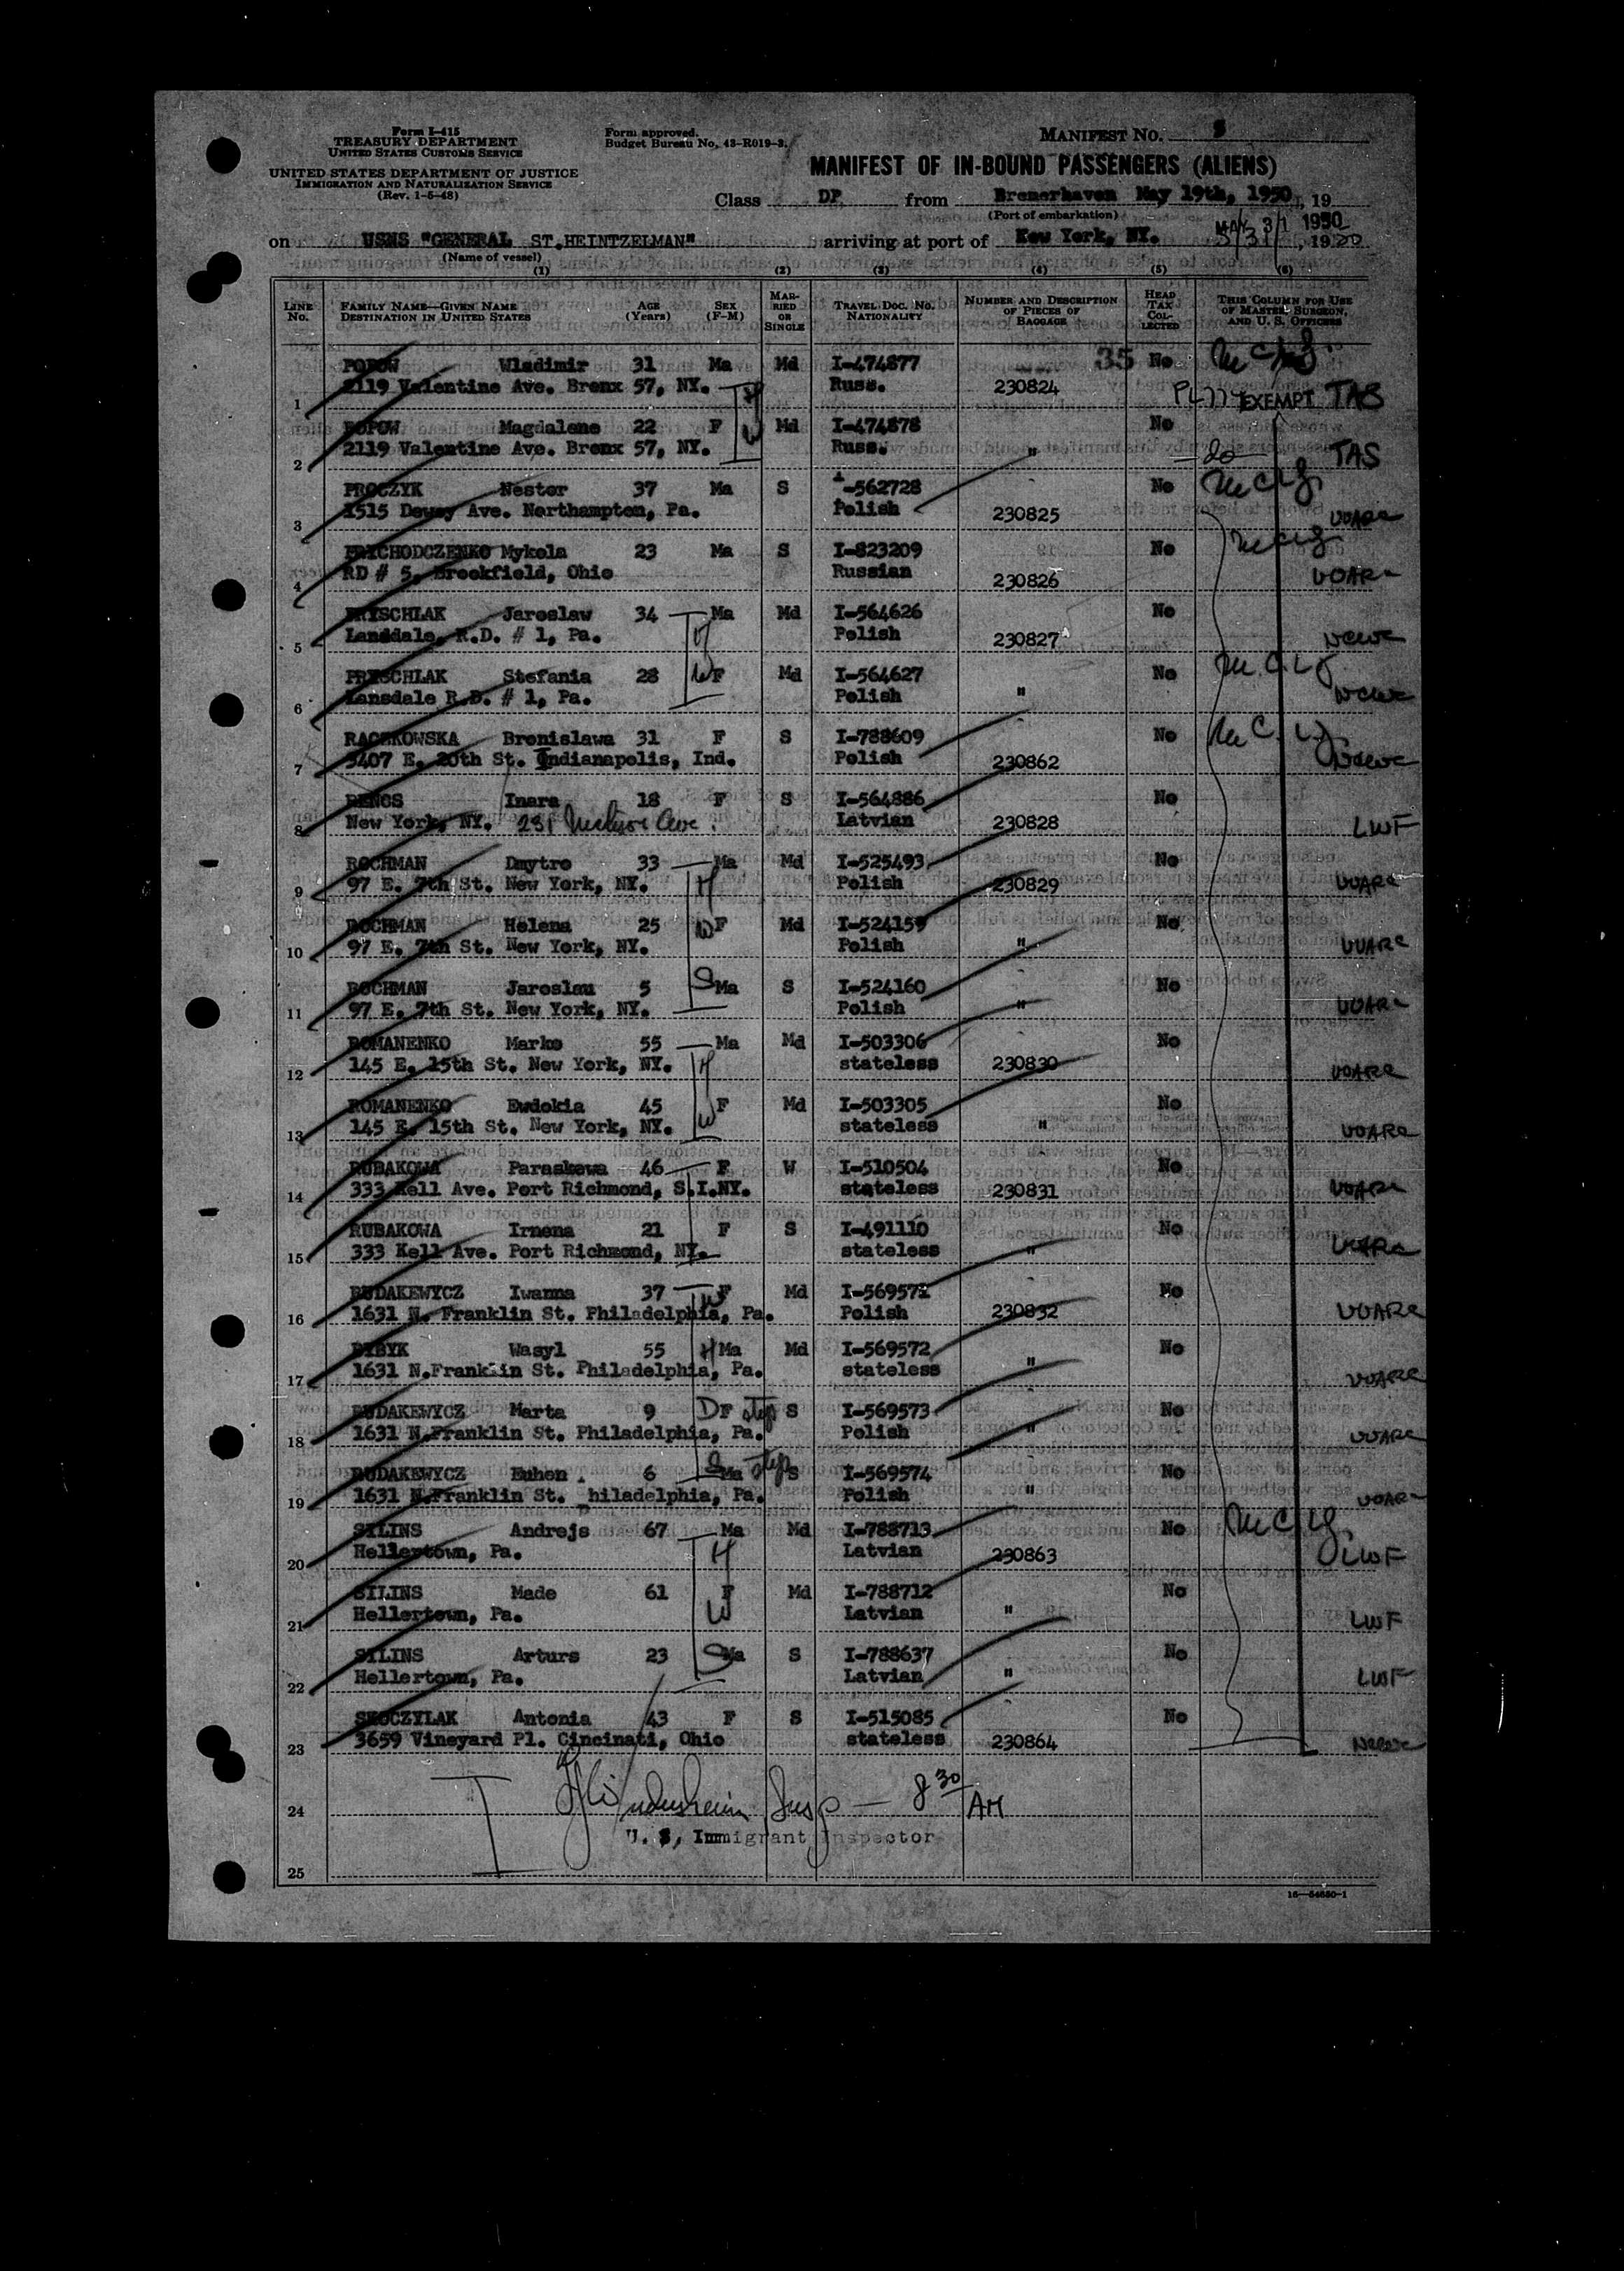 Form I-415
TREASURY DEPARTMENT
UNITED STATES CUSTOMS SERVICE
UNITED STATES DEPARTMENT OF JUSTICE
IMMIGRATION AND NATURALIZATION SERVICE
(Rev. 1-5-48)
Form approved.
Budget Bureau No. 43-R019-3.
MANIFEST NO.
MANIFEST OF IN-BOUND PASSENGERS (ALIENS)
Class DP from Bremerhaven May 19th, 1950, 19
(Port of embarkation)
on USNS "GENERAL ST.HEINTZELMAN" arriving at port of New York, NY. MAY 31 1950 5/31, 1950
(Name of vessel)
(1) (2) (3) (4) (5) (6)
LINE No. FAMILY NAME—GIVEN NAME DESTINATION IN UNITED STATES AGE (Years) SEX (F-M) MARRIED OR SINGLE TRAVEL DOC. NO. NATIONALITY NUMBER AND DESCRIPTION OF PIECES OF BAGGAGE HEAD TAX COLLECTED THIS COLUMN FOR USE OF MASTER, SURGEON, AND U. S. OFFICERS
POPOW Wladimir 31 Ma Md I-474877 35 No
1 2119 Valentine Ave. Bronx 57, NY. H Russ. 230824 EXEMPT TAS
POPOW Magdalene 22 F W Md I-474878 No
2 2119 Valentine Ave. Bronx 57, NY. Russ. " do TAS
PROCZYK Nester 37 Ma S I-562728 No
3 1515 Dewey Ave. Northampton, Pa. Polish 230825 UUARC
PRYCHODCZENKO Mykola 23 Ma S I-823209 No
4 RD # 5, Brookfield, Ohio Russian 230826 UUARC
PRYSCHLAK Jaroslaw 34 Ma Md I-564626 No
5 Lansdale, R.D. # 1, Pa. H Polish 230827 NCWC
PRYSCHLAK Stefania 28 W F Md I-564627 No
6 Lansdale R.D. # 1, Pa. Polish " NCWC
RACZKOWSKA Bronislawa 31 F S I-788609 No
7 3407 E. 20th St. Indianapolis, Ind. Polish 230862 NCWC
RENCS Inara 18 F S I-564886 No
8 New York, NY. 231 Madison Ave. Latvian 230828 LWF
ROCHMAN Dmytro 33 Ma Md I-525493 No
9 97 E. 7th St. New York, NY. H Polish 230829 UUARC
ROCHMAN Helena 25 W F Md I-524159 No
10 97 E. 7th St. New York, NY. Polish " UUARC
ROCHMAN Jaroslau 5 S Ma S I-524160 No
11 97 E. 7th St. New York, NY. Polish " UUARC
ROMANENKO Marko 55 Ma Md I-503306 No
12 145 E. 15th St. New York, NY. H stateless 230830 UUARC
ROMANENKO Ewdokia 45 F Md I-503305 No
13 145 E. 15th St. New York, NY. W stateless " UUARC
RUBAKOWA Paraskewa 46 F W I-510504 No
14 333 Kell Ave. Port Richmond, S.I.NY. stateless 230831 UUARC
RUBAKOWA Irnena 21 F S I-491110 No
15 333 Kell Ave. Port Richmond, NY. stateless " UUARC
RUDAKEWYCZ Iwanna 37 W F Md I-569571 No
16 1631 N. Franklin St. Philadelphia, Pa. Polish 230832 UUARC
RYBYK Wasyl 55 H Ma Md I-569572 No
17 1631 N.Franklin St. Philadelphia, Pa. stateless " UUARC
RUDAKEWYCZ Marta 9 D F step S I-569573 No
18 1631 N.Franklin St. Philadelphia, Pa. Polish " UUARC
RUDAKEWYCZ Euhen . 6 S Ma step S I-569574 No
19 1631 N.Franklin St. hiladelphia, Pa. Polish " UUARC
SILINS Andrejs 67 Ma Md I-788713 No
20 Hellertown, Pa. H Latvian 230863 LWF
SILINS Made 61 F Md I-788712 No
21 Hellertown, Pa. W Latvian " LWF
SILINS Arturs 23 S Ma S I-788637 No
22 Hellertown, Pa. Latvian " LWF
SKOCZYLAK Antonia 43 F S I-515085 No
23 3659 Vineyard Pl. Cincinati, Ohio stateless 230864 NCWC
24 Insp — 8 30 AM
U. S, Immigrant Inspector
25
16—54650-1